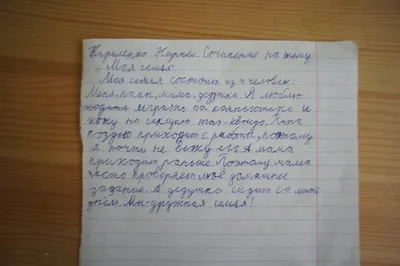 Кириленко Кирилл. Сочинение на тему:
Моя семья.
Моя семья состоит из 4 человек:
Меня, папы, мама, дедушка. Я люблю
играть на компьютере и
хожу на секцию таэ-квондо. Папа
поздно приходит с работы, поэтому
я почти не вижу его. А мама
приходит раньше. Поэтому мама
часто проверяет моё домашнее
задание. А дедушка сидит со мной
днём. Мы-дружная семья!